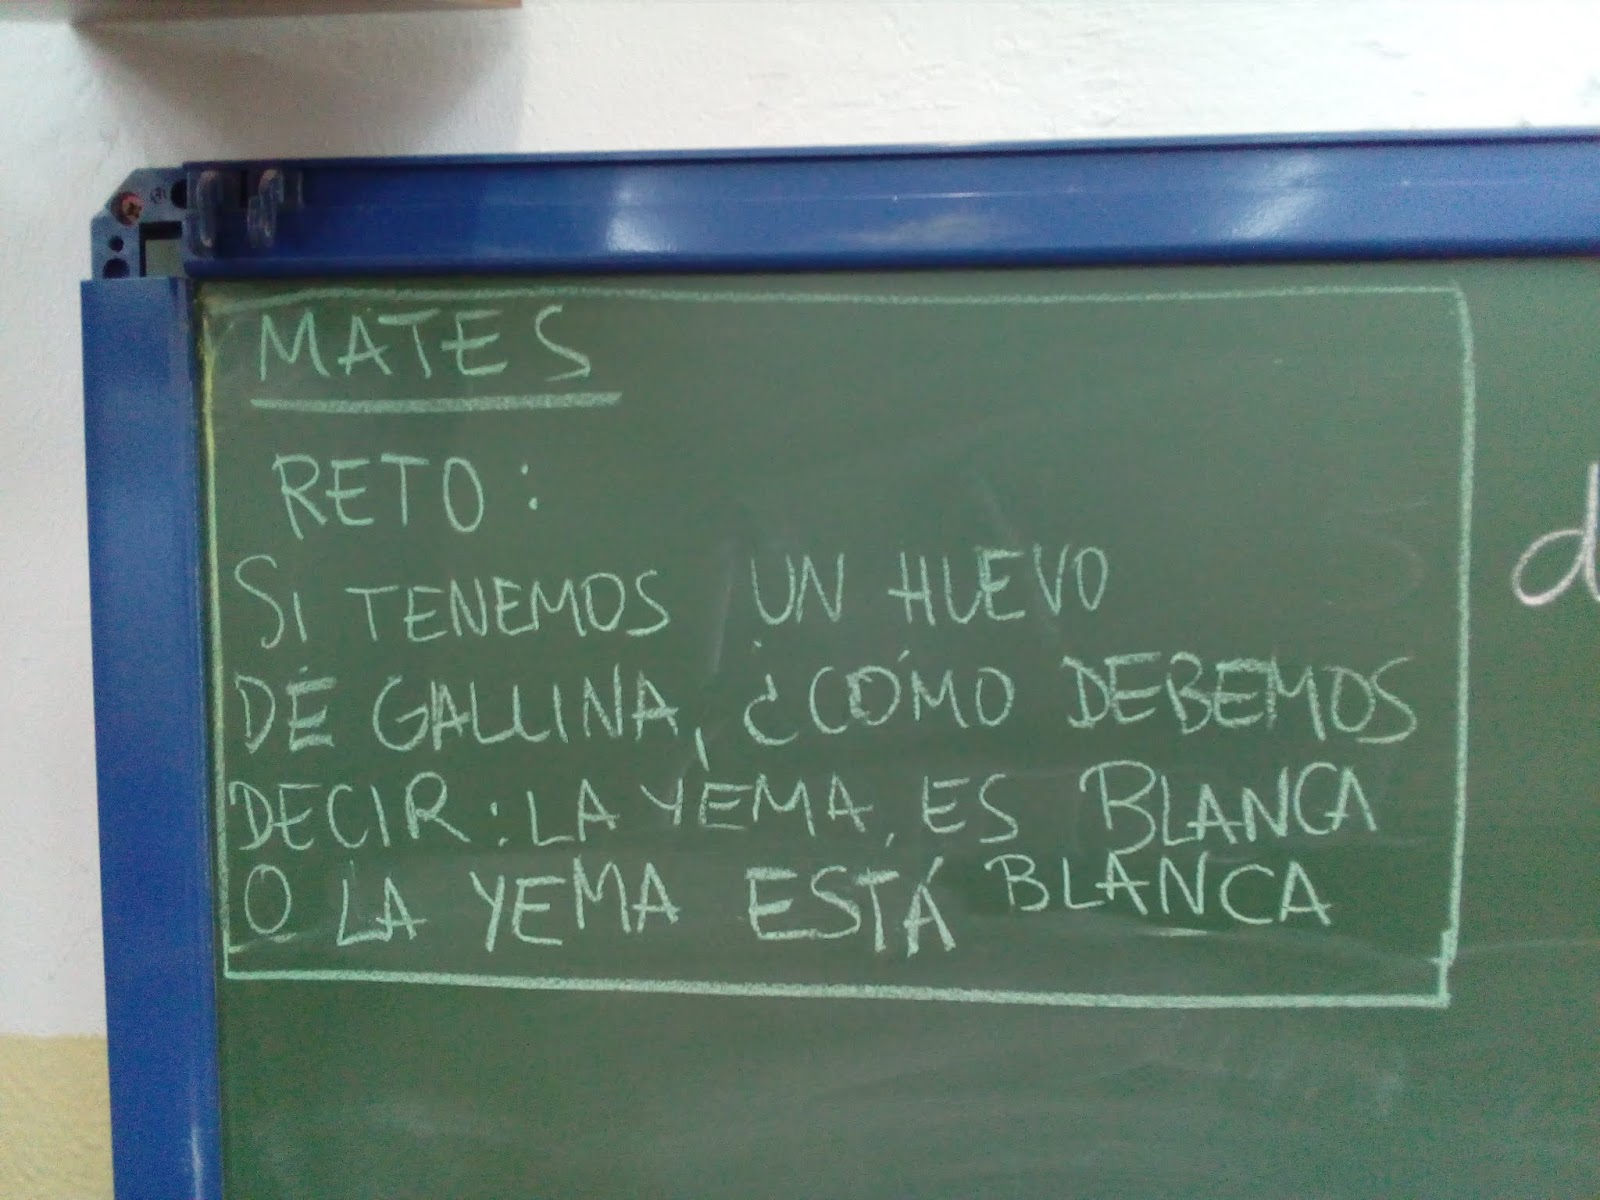 MATES
RETO:
SI TENEMOS UN HUEVO
DE GALLINA, ¿CÓMO DEBEMOS
DECIR: LA YEMA, ES BLANCA
O LA YEMA ESTÁ BLANCA
d